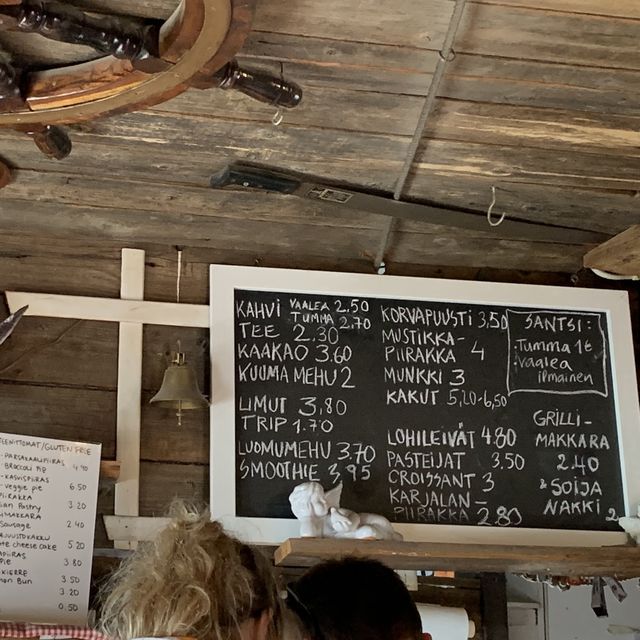 KAHVI VAALEA 2.50
TUMMA 2.70
TEE 2.30
KAAKAO 3.60
KUUMA MEHU 2
LIMUT 3,80
TRIP 1.70
LUOMUMEHU 3.70
SMOOTHIE 3,95
KORVAPUUSTI 3,50
MUSTIKKA-
PIIRAKKA 4
MUNKKI 3
KAKUT 5,20-6,50
LOHILEIVÄT 4.80
PASTEIJAT 3.50
CROISSANT 3
KARJALAN-
PIIRAKKA 2.80
SANTSI:
Tumma 1€
Vaalea
ilmainen
GRILLI-
MAKKARA
2.40
& SOIJA
NAKKI 2
TEENITTOMAT/GLUTEN FREE
-PARSAKAALIPIIRAS
BROCCOLI PIE 4.90
-KASVISPIIRAS
- veggie pie 6.50
PIIRAKKA
ian Pastry 3.20
MAKKARA
Sausage 2.40
JUUSTOKAKKU
te cheese cake 5.20
APIIRAS
Pie 3.80
KIERRE
mon Bun 3.50
3.20
0.50